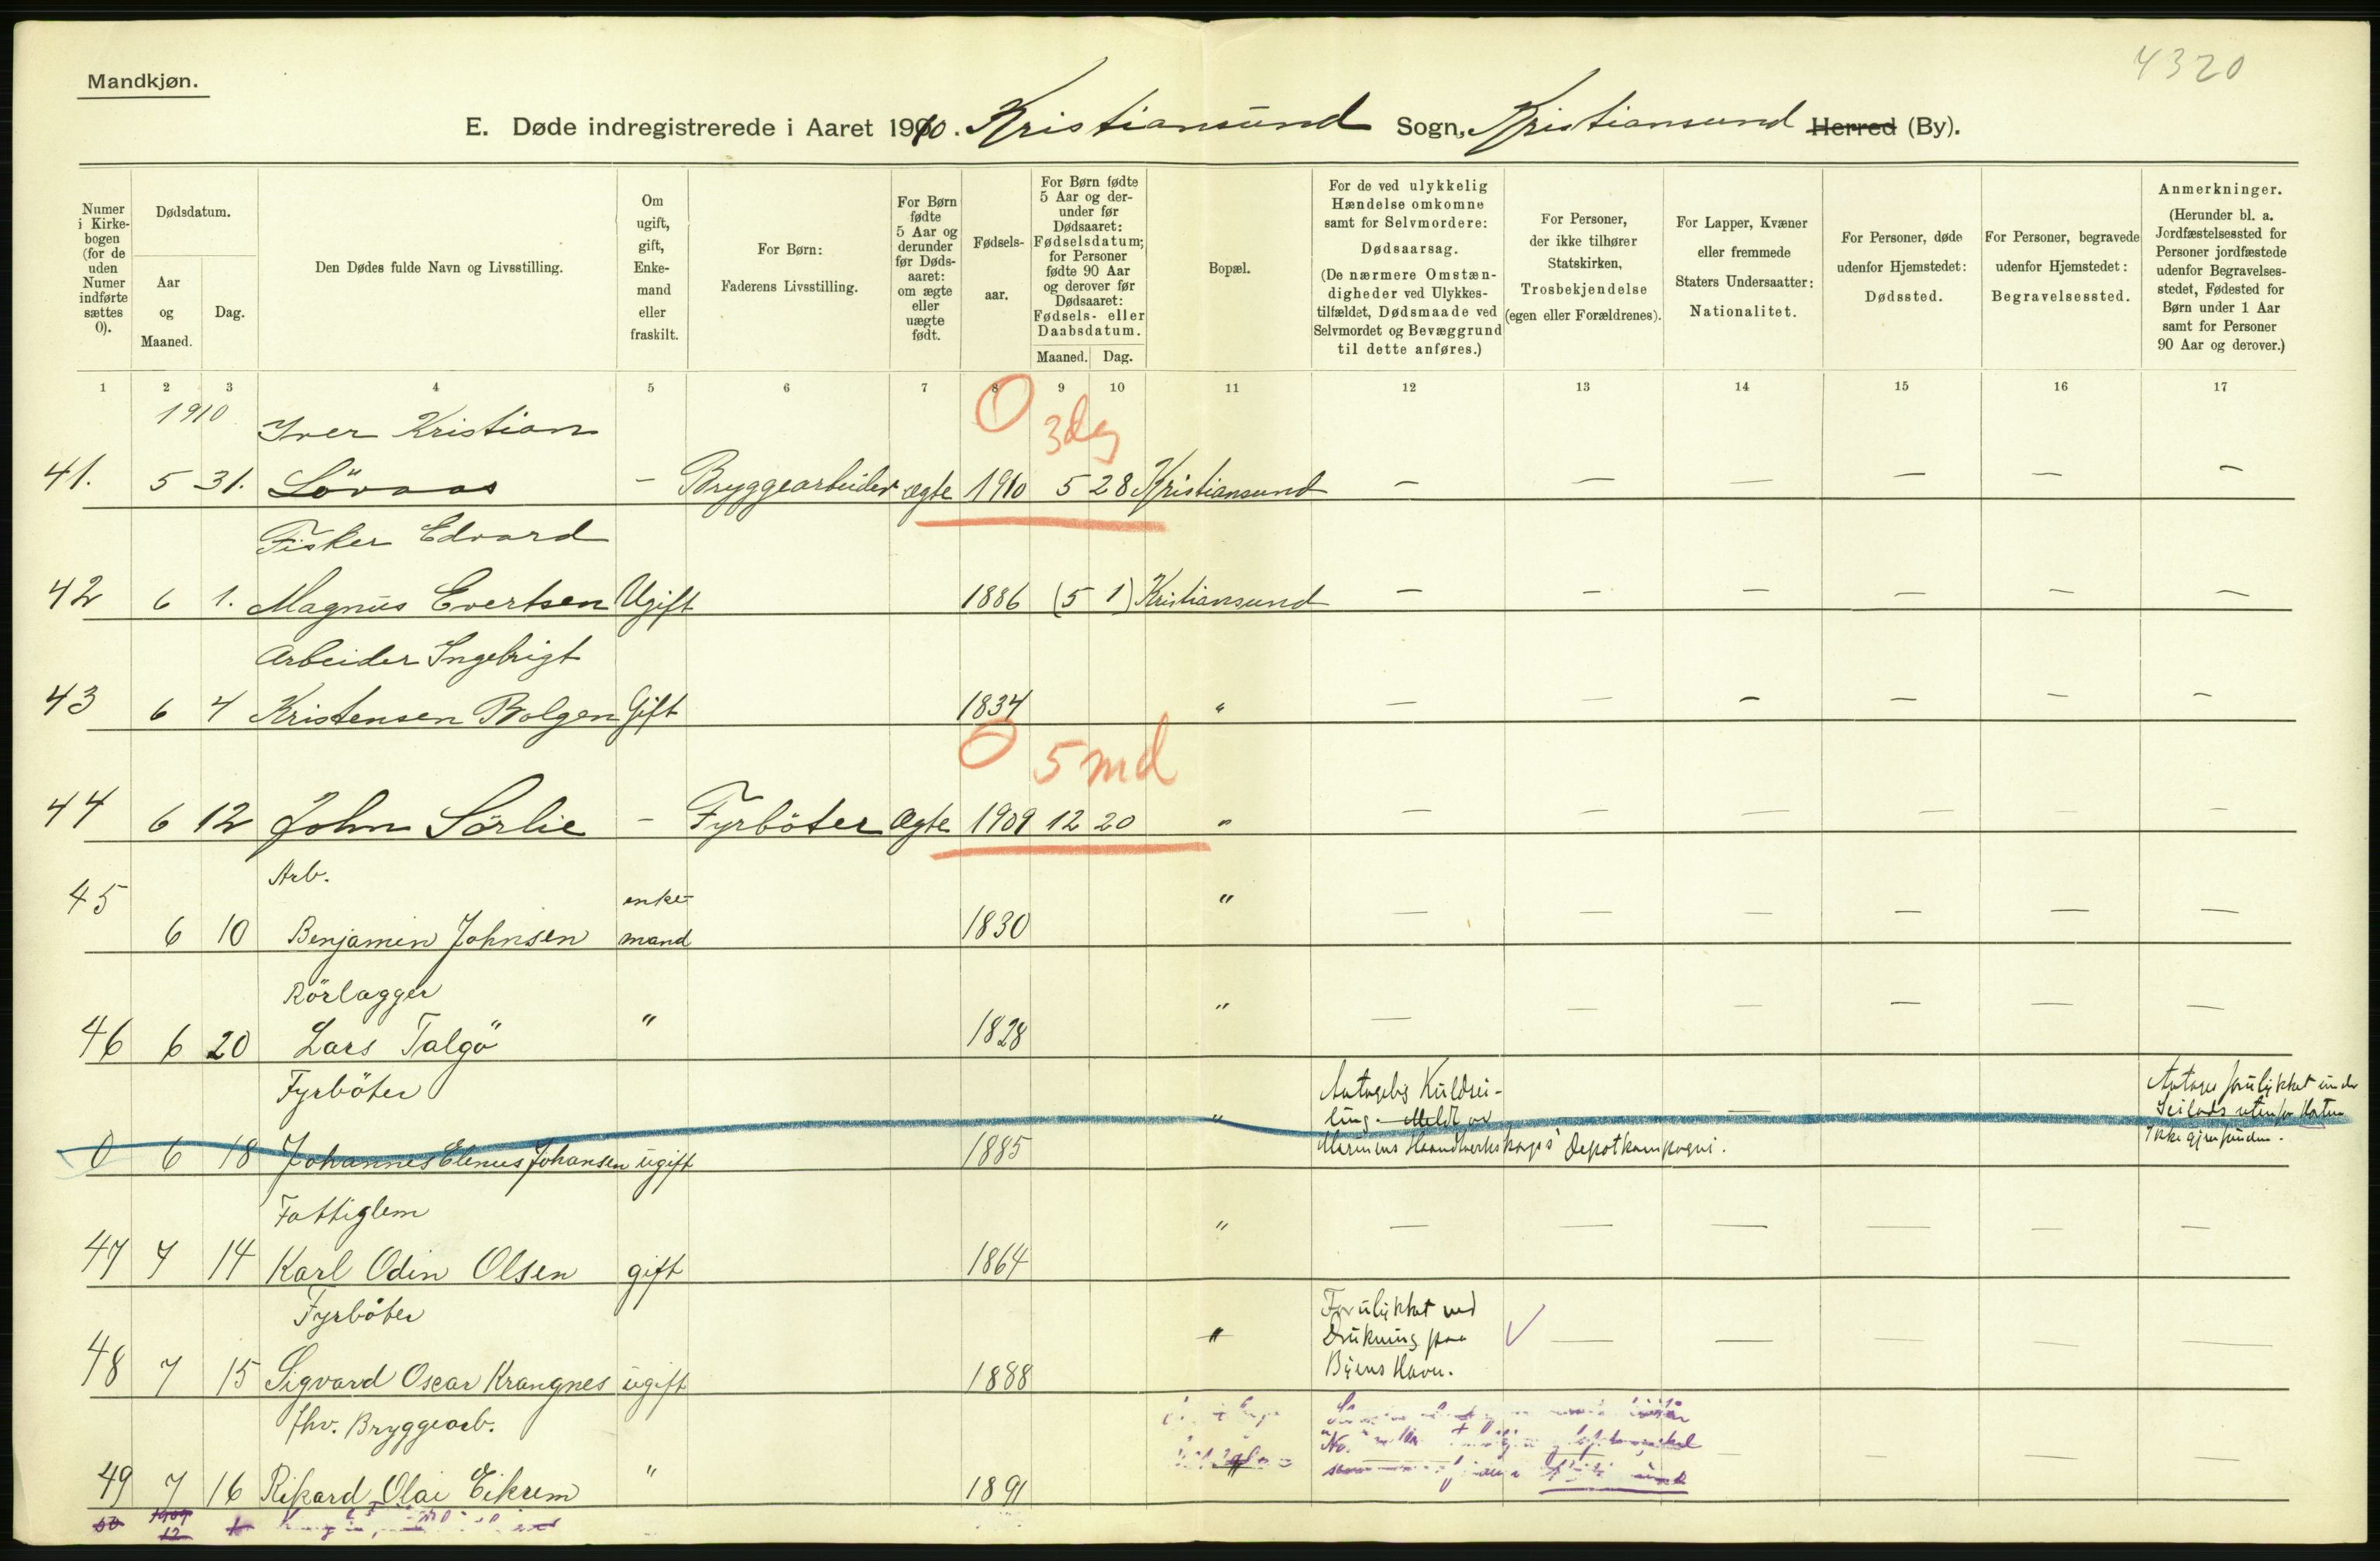 4320
Mandkjøn.
E. Døde indregistrerede i Aaret 1910. Kristiansund Sogn, Kristiansund Herred (By).
Numer i Kirke- bogen (for de uden Numer indførte sættes 0).
Dødsdatum.
Aar og Maaned.
Dag.
Den Dødes fulde Navn og Livsstilling.
Om ugift, gift, Enke- mand eller fraskilt.
For Børn:
Faderens Livsstilling.
For Børn fødte 5 Aar og derunder før Døds- aaret: om ægte eller uægte født.
Fødsels- aar.
For Børn fødte 5 Aar og der- under før Dødsaaret: Fødselsdatum; for Personer fødte 90 Aar og derover før Dødsaaret: Fødsels- eller Daabsdatum.
Maaned. Dag.
Bopæl.
For de ved ulykkelig Hændelse omkomne samt for Selvmordere:
Dødsaarsag.
(De nærmere Omstæn- digheder ved Ulykkes- tilfældet, Dødsmaade ved Selvmordet og Bevæggrund til dette anføres.)
For Personer, der ikke tilhører Statskirken,
Trosbekjendelse
(egen eller Forældrenes).
For Lapper, Kvæner eller fremmede Staters Undersaatter:
Nationalitet.
For Personer, døde udenfor Hjemstedet:
Dødssted.
For Personer, begravede udenfor Hjemstedet:
Begravelsessted.
Anmerkninger.
(Herunder bl. a. Jordfæstelsessted for Personer jordfæstede udenfor Begravelses- stedet, Fødested for Børn under 1 Aar samt for Personer 90 Aar og derover.)
1 2 3 4 5 6 7 8 9 10 11 12 13 14 15 16 17
1910 Iver Kristian 0 3dg
41. 5 31. Lövaas – Bryggearbeider ægte 1910 5 28 Kristiansund – – – – – –
Fisker Edvard
42 6 1. Magnus Evertsen Ugift 1886 (5 1) Kristiansund – – – – – –
Arbeider Ingebrigt
43 6 4 Kristensen Bolgen Gift 1834 " – – – – – –
0 5 md
44 6 12 John Sörlie – Fyrböter Ægte 1909 12 20 " – – – – – –
Arb. enke-
45 6 10 Benjamin Johnsen mand 1830 " – – – – – –
Rörlægger
46 6 20 Lars Talgö " 1828 " – – – – – –
Fyrböter
0 6 18 Johannes Elenus Johansen ugift 1885 "
Antagelig Kuldsei-
ling. Meldt av
Marinens Haandverkskorps' Depotkompagni.
Antages forulykket under
Seilads utenfor Horten
Ikke gjenfunden.
Fattiglem
47 7 14 Karl Odin Olsen gift 1864 " – – – – – –
Fyrböter
48 7 15 Sigvard Oscar Krangnes ugift 1888 "
Forulykket ved
Drukning paa
Byens Havn.
✓ – – – – –
fhv. Bryggearb.
49 7 16 Rikard Olai Eikrem " 1891 " – – – –
50 1909 12